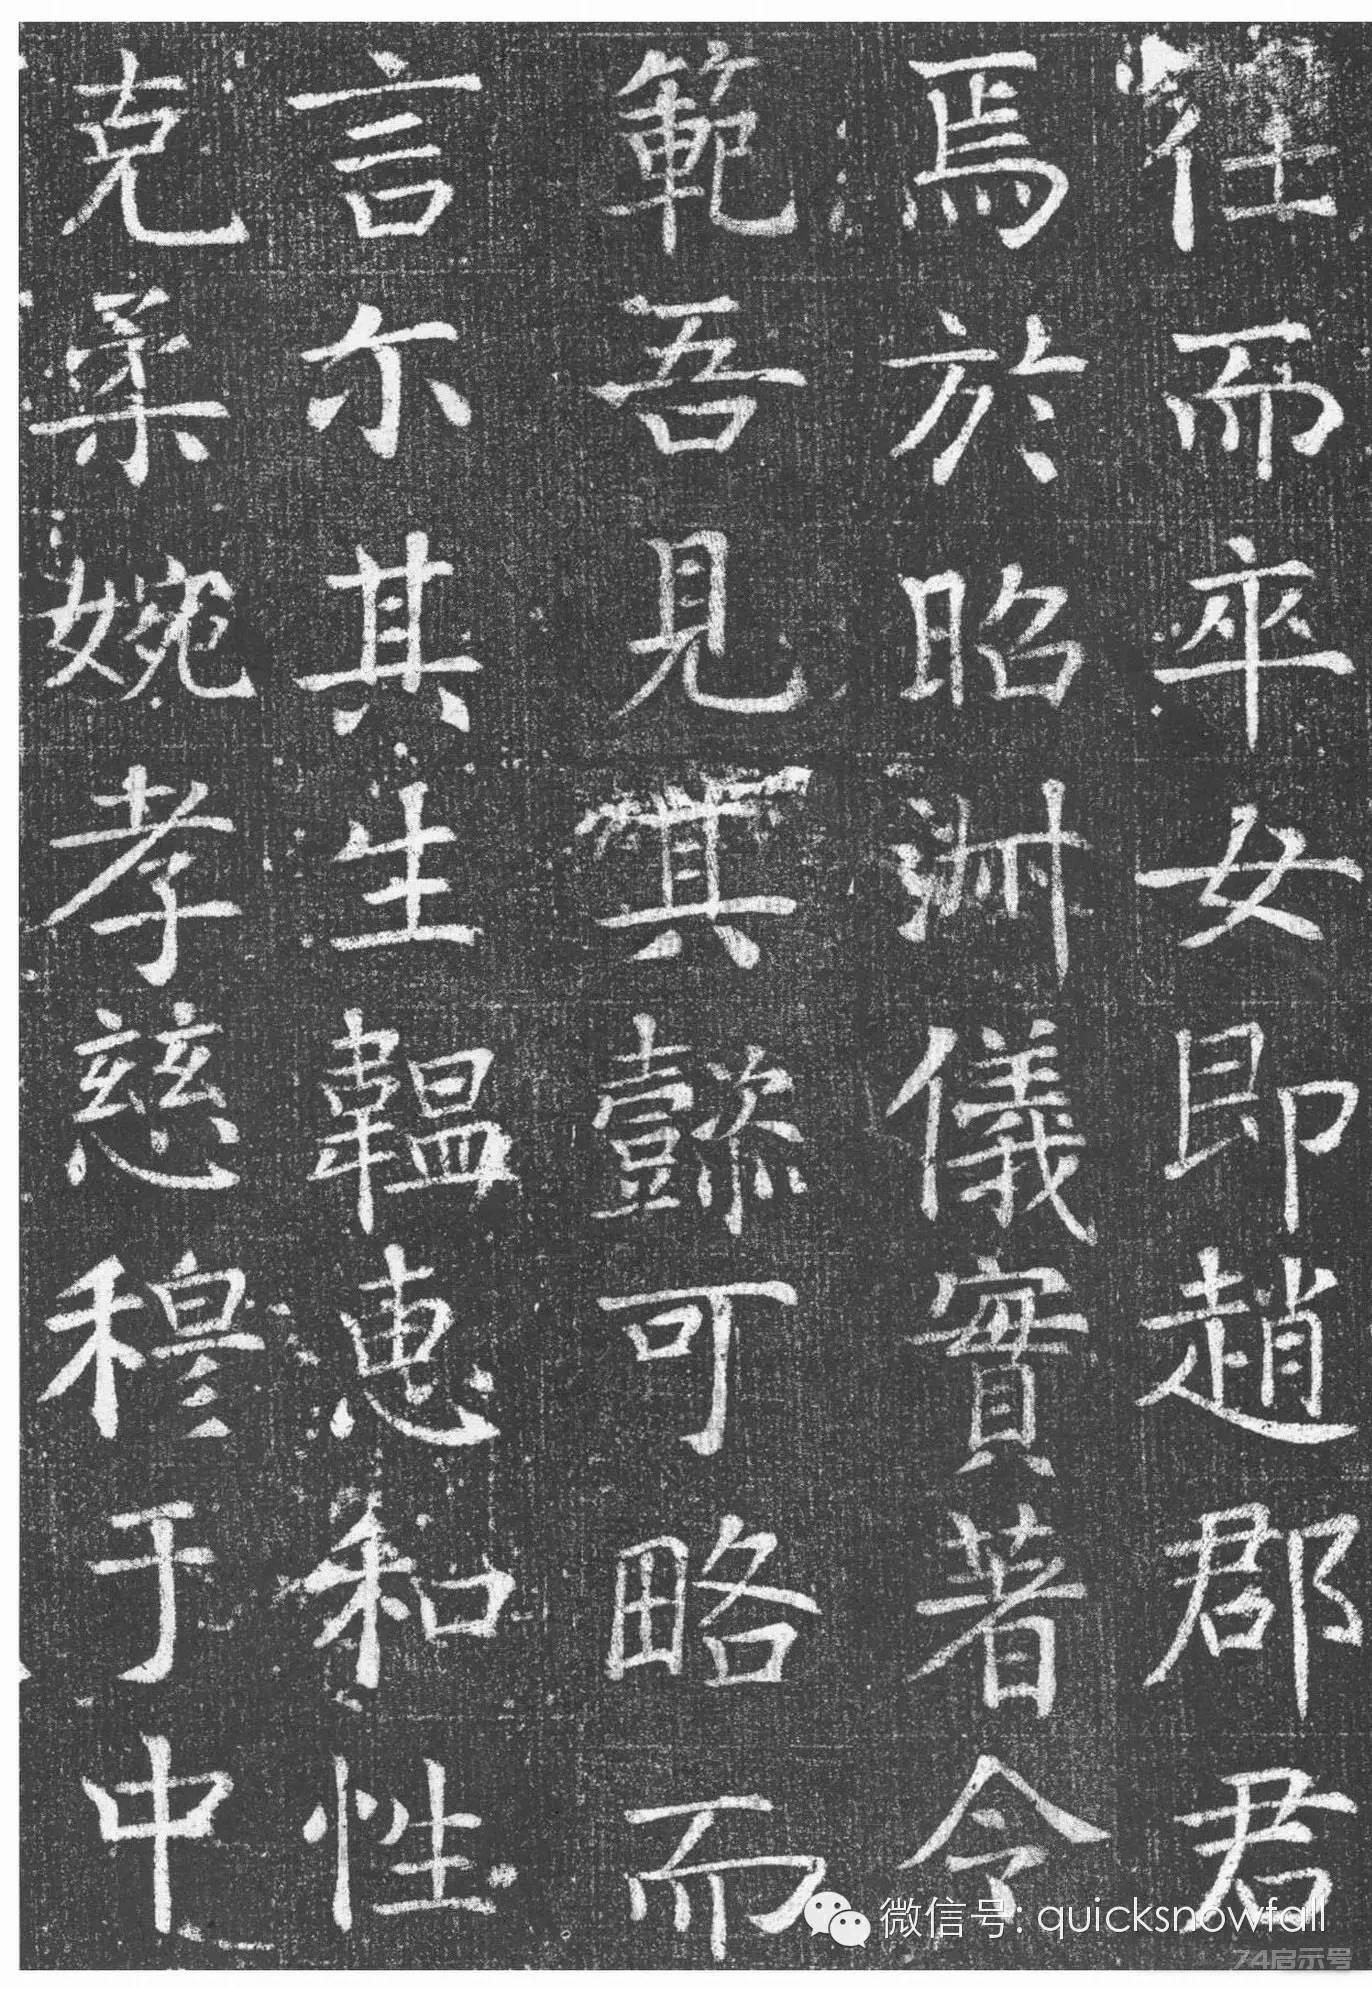 往而卒女即趙郡君
焉於昭淋儀實著令
範吾見其懿可略而
言尔其生韞恵和性
克柔婉孝慈穆于中
微信号: quicksnowfall
74启示号